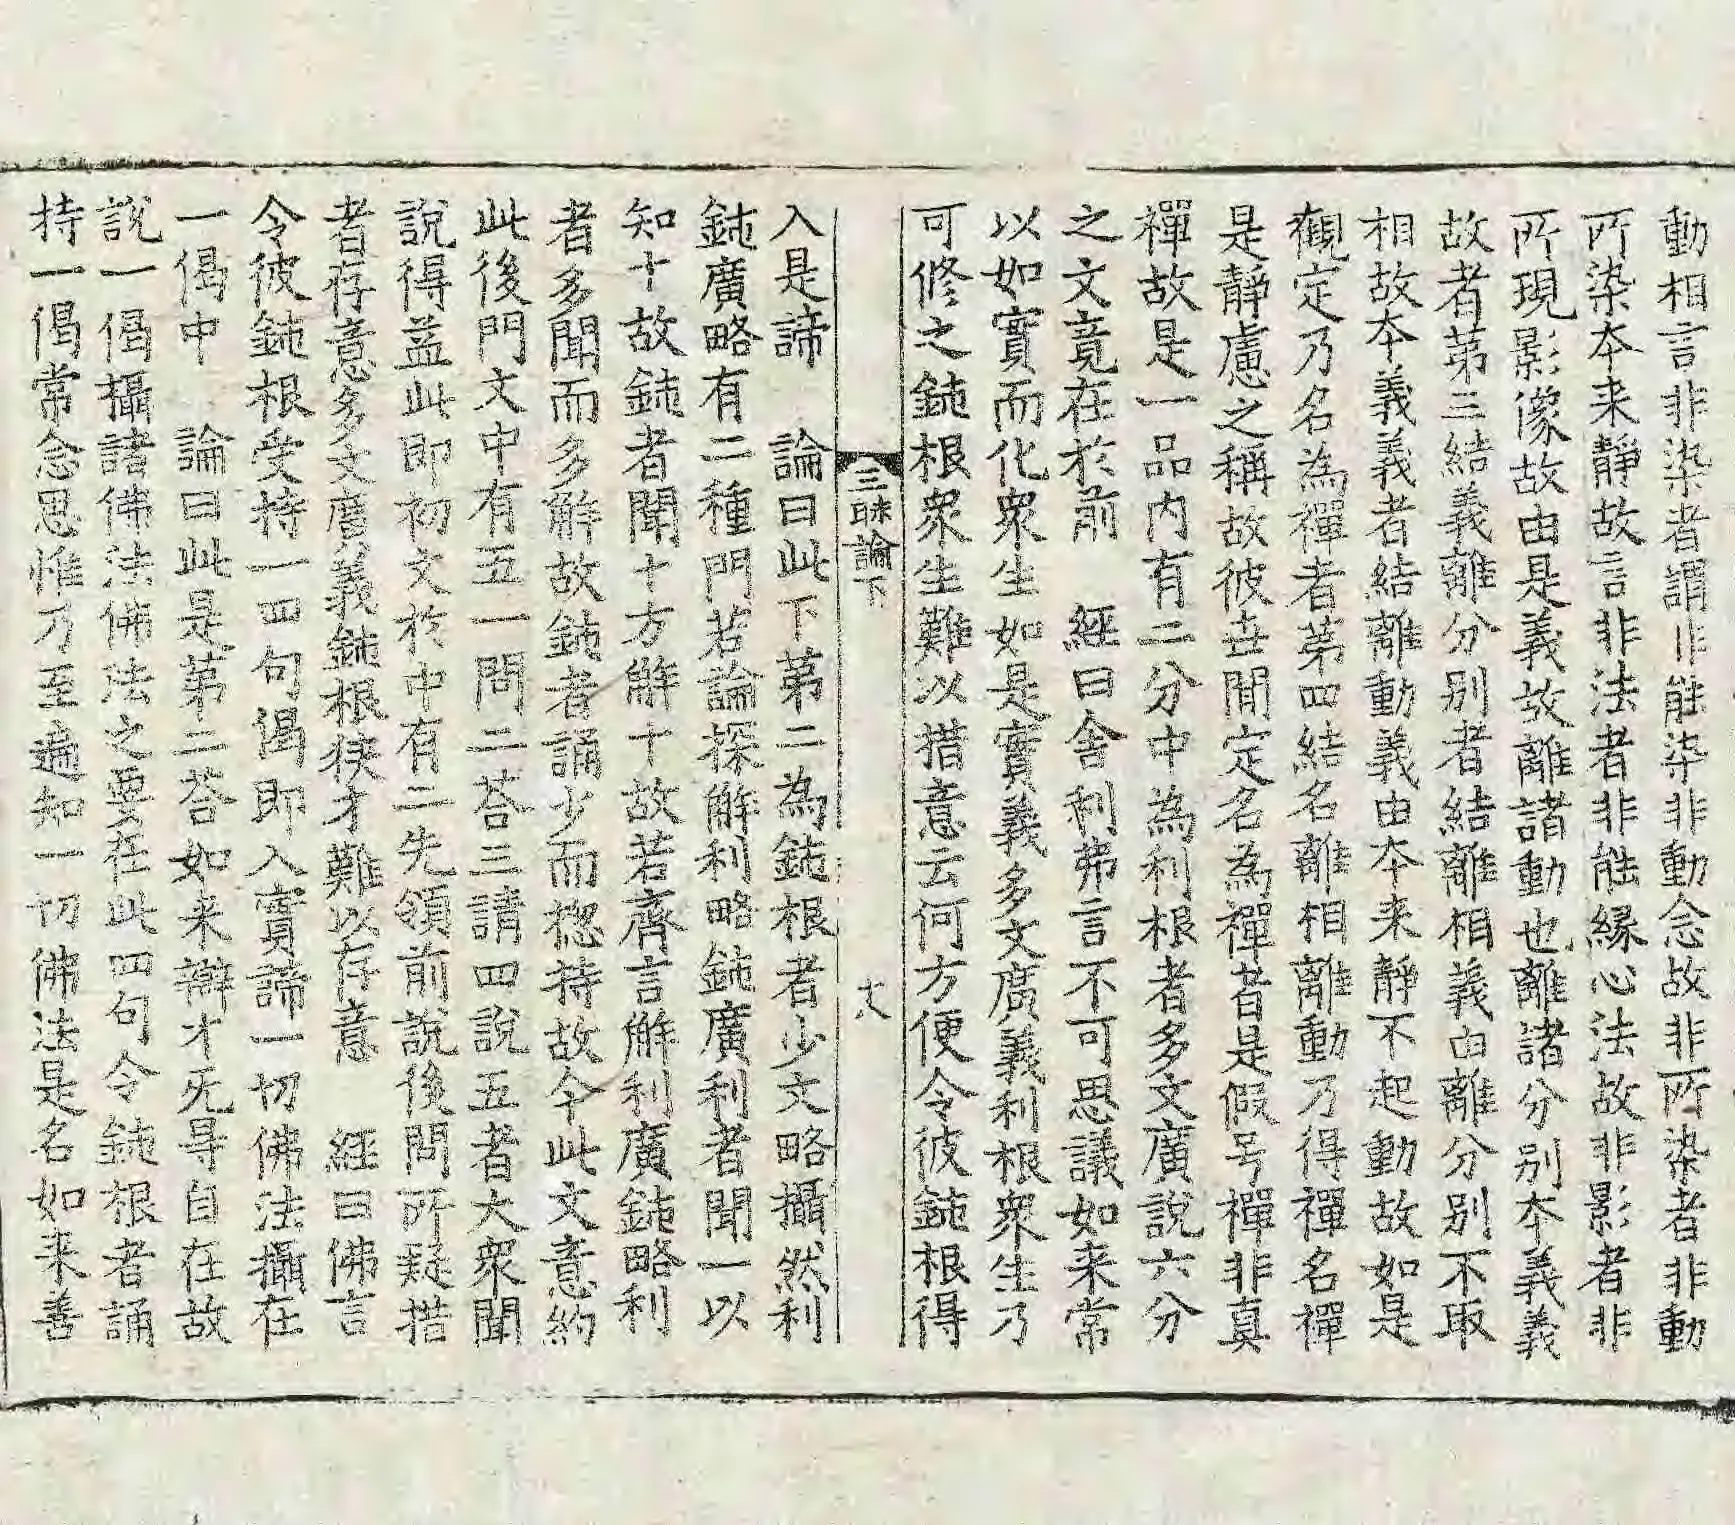 動相言非染者謂非能染非動念故非所染者非動
所染本来靜故言非法者非能縁心法故非影者非
所現影像故由是義故離諸動也離諸分别本義義
故者苐三結義離分别者結離相義由離分别不取
相故本義義者結離動義由本来靜不起動故如是
觀定乃名為禪者苐四結名離相離動乃得禪名禪
是靜慮之稱故彼世間定名為禪者是假号禪非真
禪故是一品内有二分中為利根者多文廣說六分
之文竟在於前　經曰舍利弗言不可思議如来常
以如實而化衆生如是實義多文廣義利根衆生乃
可修之鈍根衆生難以措意云何方便令彼鈍根得
三昧論下
十八
入是諦　論曰此下苐二為鈍根者少文略攝然利
鈍廣略有二種門若論探解利略鈍廣利者聞一以
知十故鈍者聞十方解十故若齊言解利廣鈍略利
者多聞而多解故鈍者誦少而揔持故今此文意約
此後門文中有五一問二荅三請四說五者大衆聞
說得益此即初文於中有二先領前說後問所疑措
者存意多文廣義鈍根狭才難以存意　經曰佛言
令彼鈍根受持一四句偈即入實諦一切佛法攝在
一偈中　論曰此是苐二荅如来辯才无㝵自在故
說一偈攝諸佛法佛法之要在此四句令鈍根者誦
持一偈常念思惟乃至遍知一切佛法是名如来善